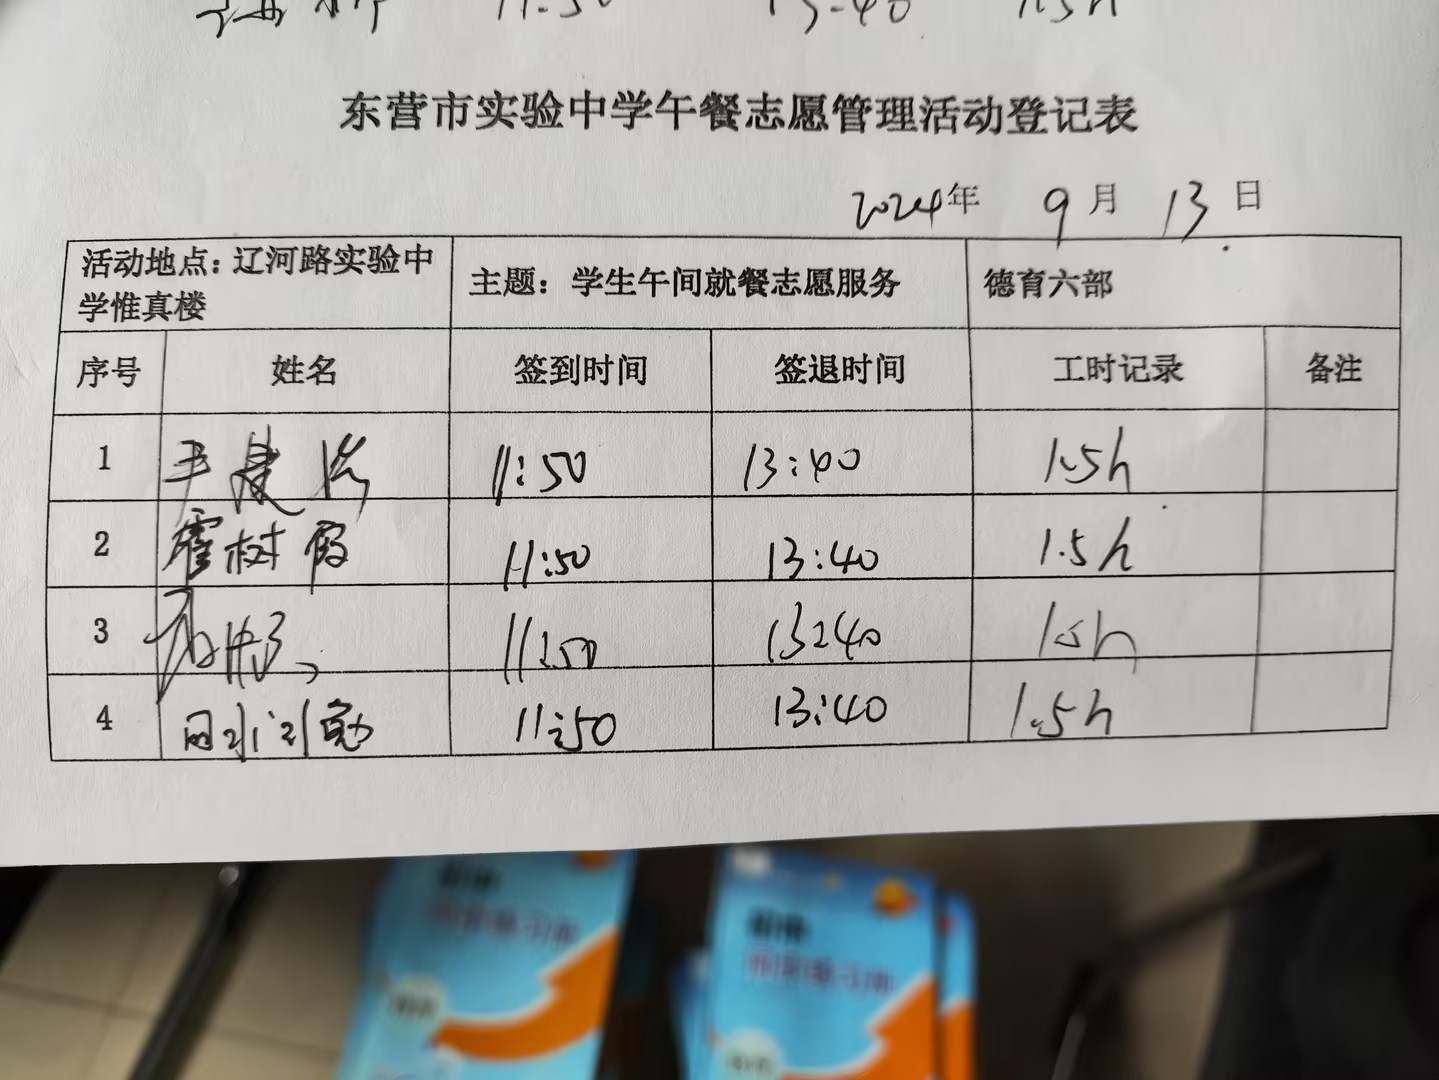 11:50 13:40 1.5h
东营市实验中学午餐志愿管理活动登记表
2024年 9月 13日
活动地点:辽河路实验中学惟真楼 主题:学生午间就餐志愿服务 德育六部
序号 姓名 签到时间 签退时间 工时记录 备注
1 11:50 13:40 1.5h
2 霍树霞 11:50 13:40 1.5h
3 11:50 13:40 1.5h
4 11:50 13:40 1.5h